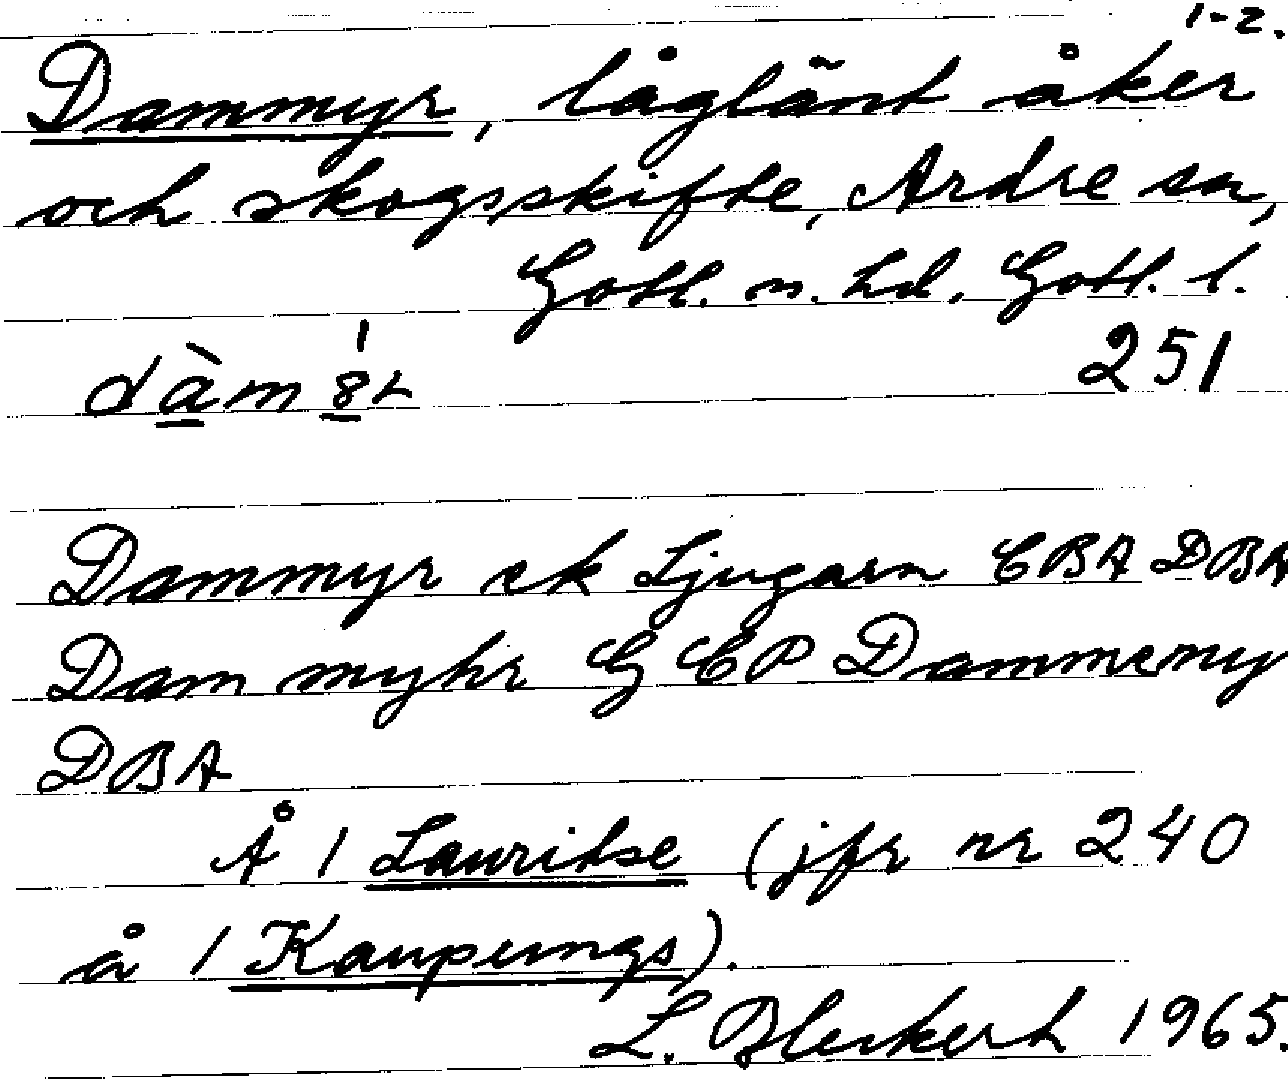 1-2.
Dammyr, låglänt åker
och skogsskifte, Ardre sn,
Gotl. n. hd. Gotl. l.
251
Dammyr ek Ljugarn CBA DBA
Dam myhr G CP Dammemy
DBA
Å 1 Lauritse (jfr nr 240
å 1 Kaupungs).
L. Bleckert 1965.